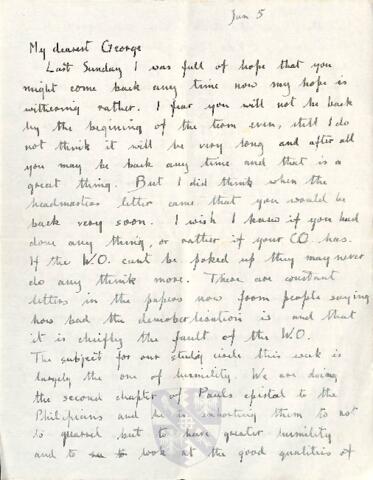 Jan 5
My dearest George
Last Sunday I was full of hope that you
might come back any time now my hope is
withering rather. I fear you will not be back
by the beginning of the term even, still I do
not think it will be very long and after all
you may be back any time and that is a
great thing. But I did think when the
headmasters letter came that you would be
back very soon. I wish I knew if you had
done any thing, or rather if your C.O. has.
If the W.O. cant be poked up they may never
do any think more. There are constant
letters in the papers now from people saying
how bad the demoberlisation is and that
it is cheifly the fault of the W.O.
The subject for our study circle this week is
largely the one of humility. We are doing
the second chapter of Pauls epistal to the
Philipians and he is exhorting them to not
to quarrel but to have greater humility
and to look at the good qualities of